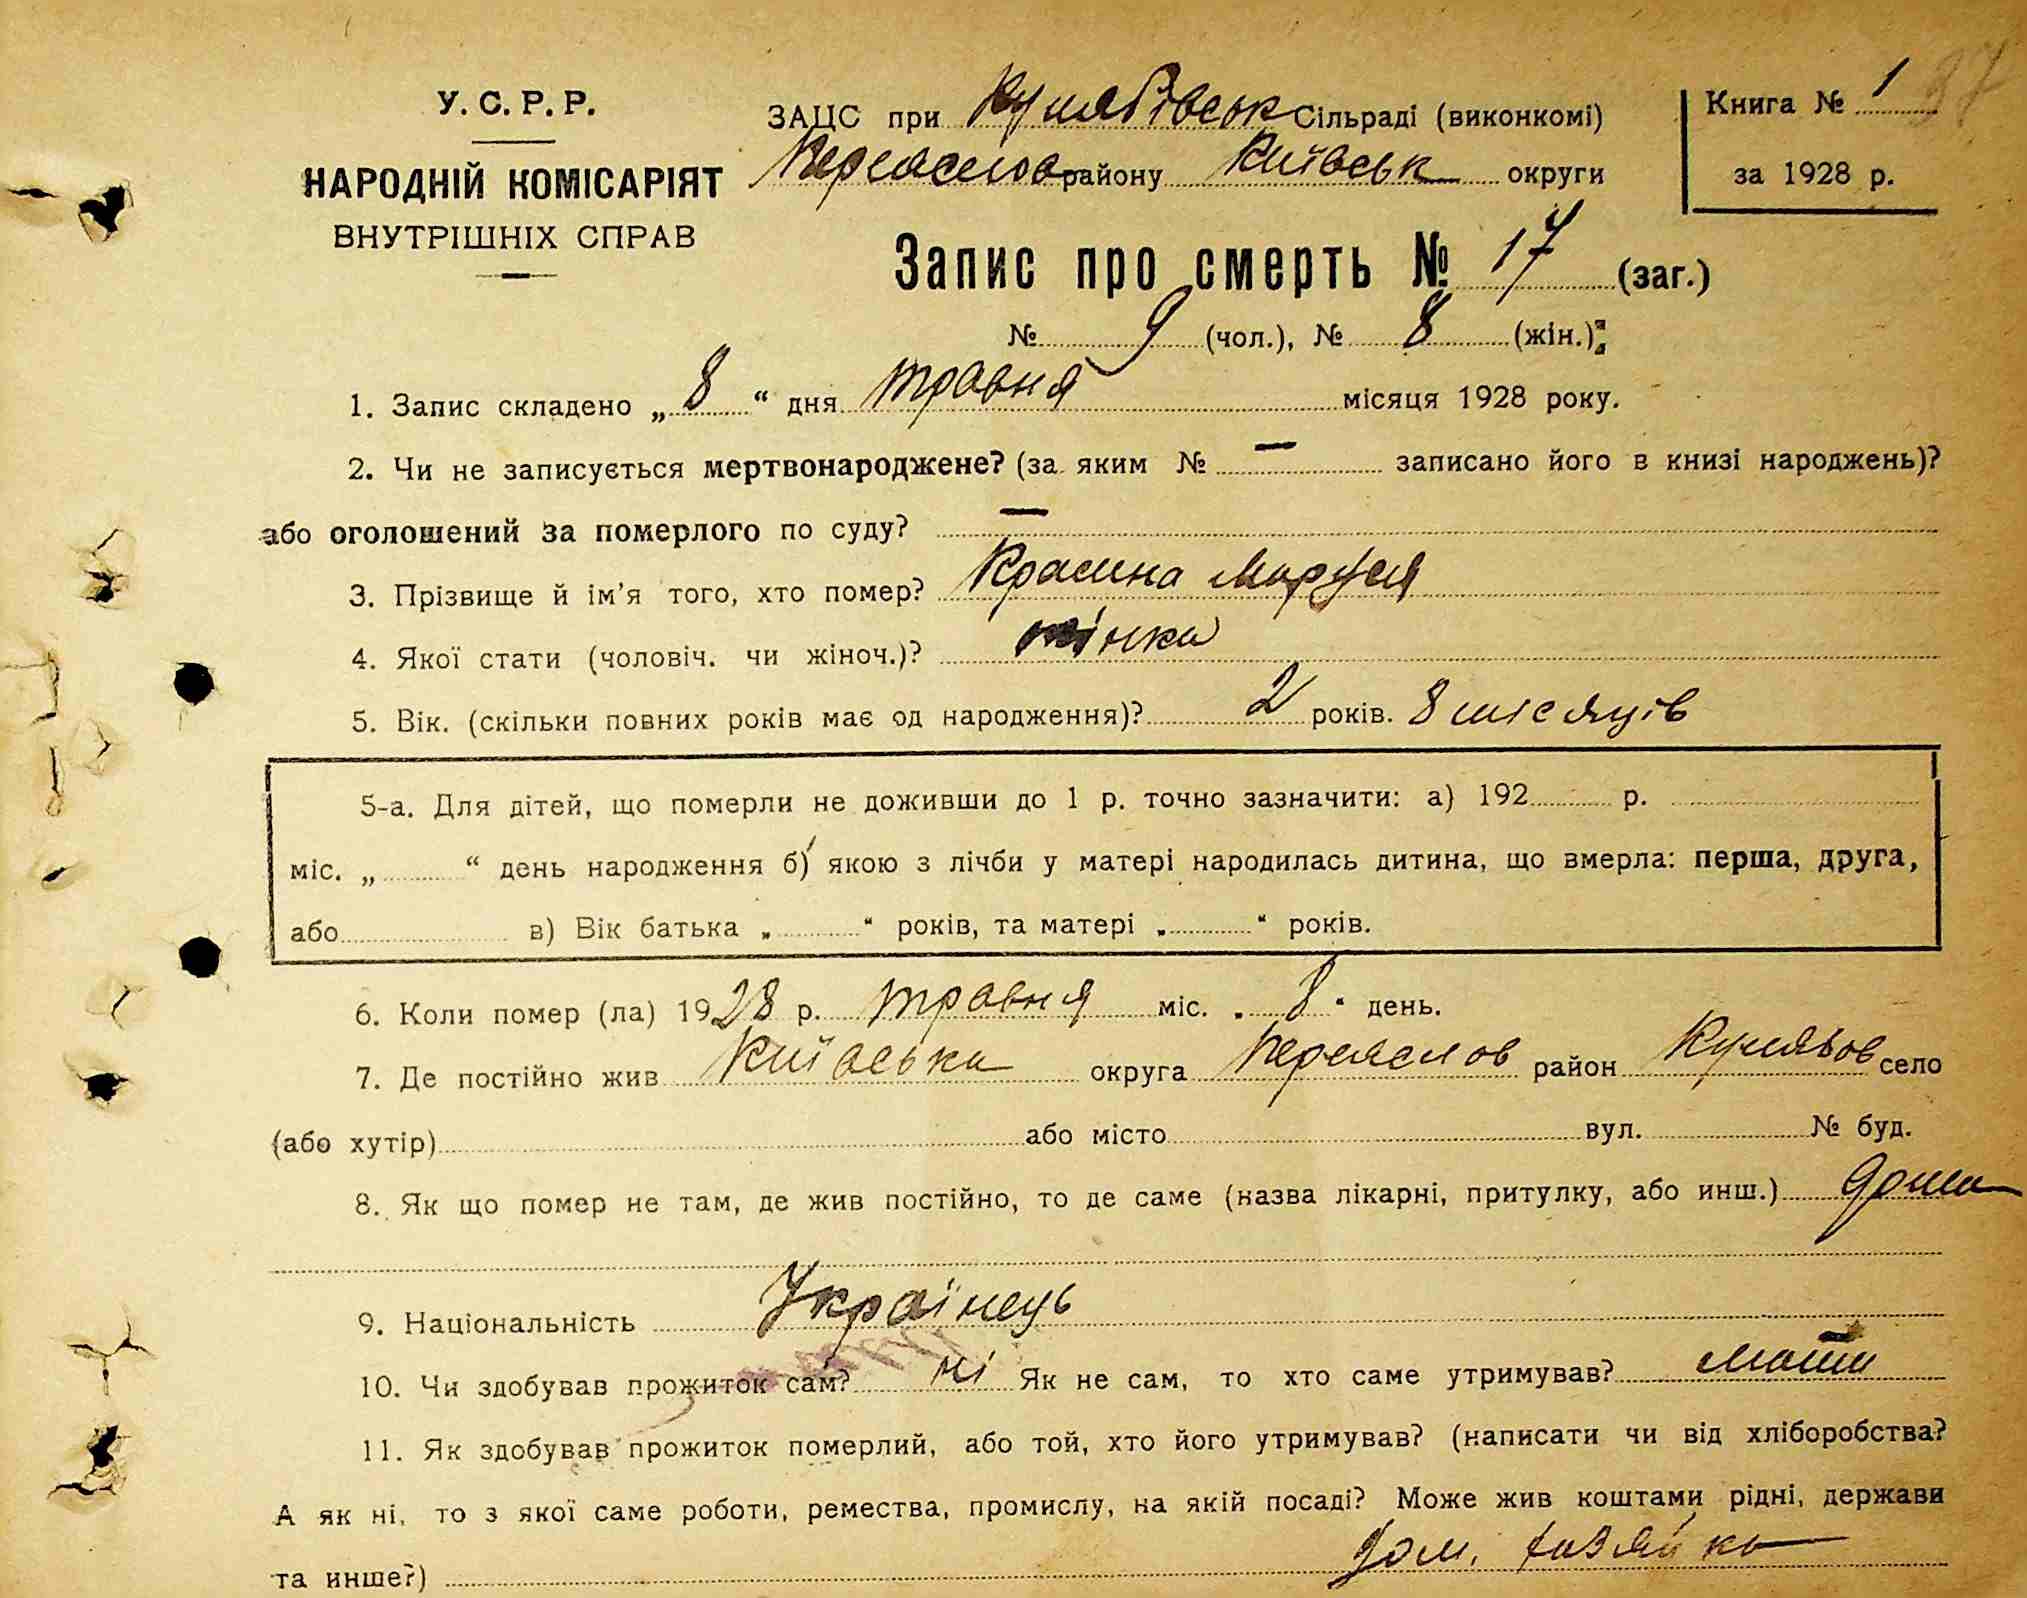 У. С. Р. Р.
НАРОДНІЙ КОМІСАРІЯТ
ВНУТРІШНІХ СПРАВ
ЗАЦС при Кулябівськ Сільраді (виконкомі)
Переяслов району Київськ округи
Книга № 1
37
за 1928 р.
Запис про смерть № 17 (заг.)
№ 9 (чол.), № 8 (жін.);
1. Запис складено „ 8 “ дня травня місяця 1928 року.
2. Чи не записується мертвонароджене? (за яким № — записано його в книзі народжень)?
або оголошений за померлого по суду? —
3. Прізвище й ім'я того, хто помер? Красина Маруся
4. Якої стати (чоловіч. чи жіноч.)? жінка
5. Вік. (скільки повних років має од народження)? 2 років. 8 місяців
5-а. Для дітей, що померли не доживши до 1 р. точно зазначити: а) 192 р.
міс. „ “ день народження б) якою з лічби у матері народилась дитина, що вмерла: перша, друга,
або в) Вік батька „ “ років, та матері „ “ років.
6. Коли помер (ла) 1928 р. травня міс. „ 8 “ день.
7. Де постійно жив Київська округа Переяслов район Кулябов село
(або хутір) або місто вул. № буд.
8. Як що помер не там, де жив постійно, то де саме (назва лікарні, притулку, або инш.) дома
9. Національність Українець
10. Чи здобував прожиток сам? ні Як не сам, то хто саме утримував? мати
11. Як здобував прожиток померлий, або той, хто його утримував? (написати чи від хліборобства?
А як ні, то з якої саме роботи, ремества, промислу, на якій посаді? Може жив коштами рідні, держави
та инше?) дом. хазяйка